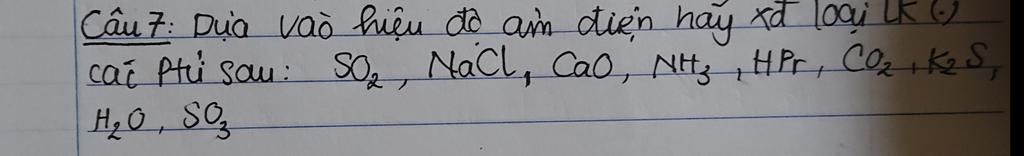 Câu 7: Dựa vào hiệu độ âm điện hãy xđ loại LK (.)
các ptử sau: SO₂, NaCl, CaO, NH₃, HPr, CO₂, K₂S,
H₂O, SO₃